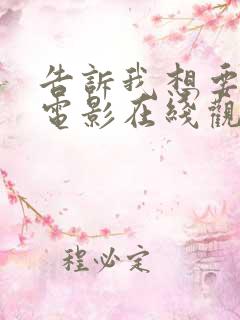 告訴我想要
電影在綫觀
程必定